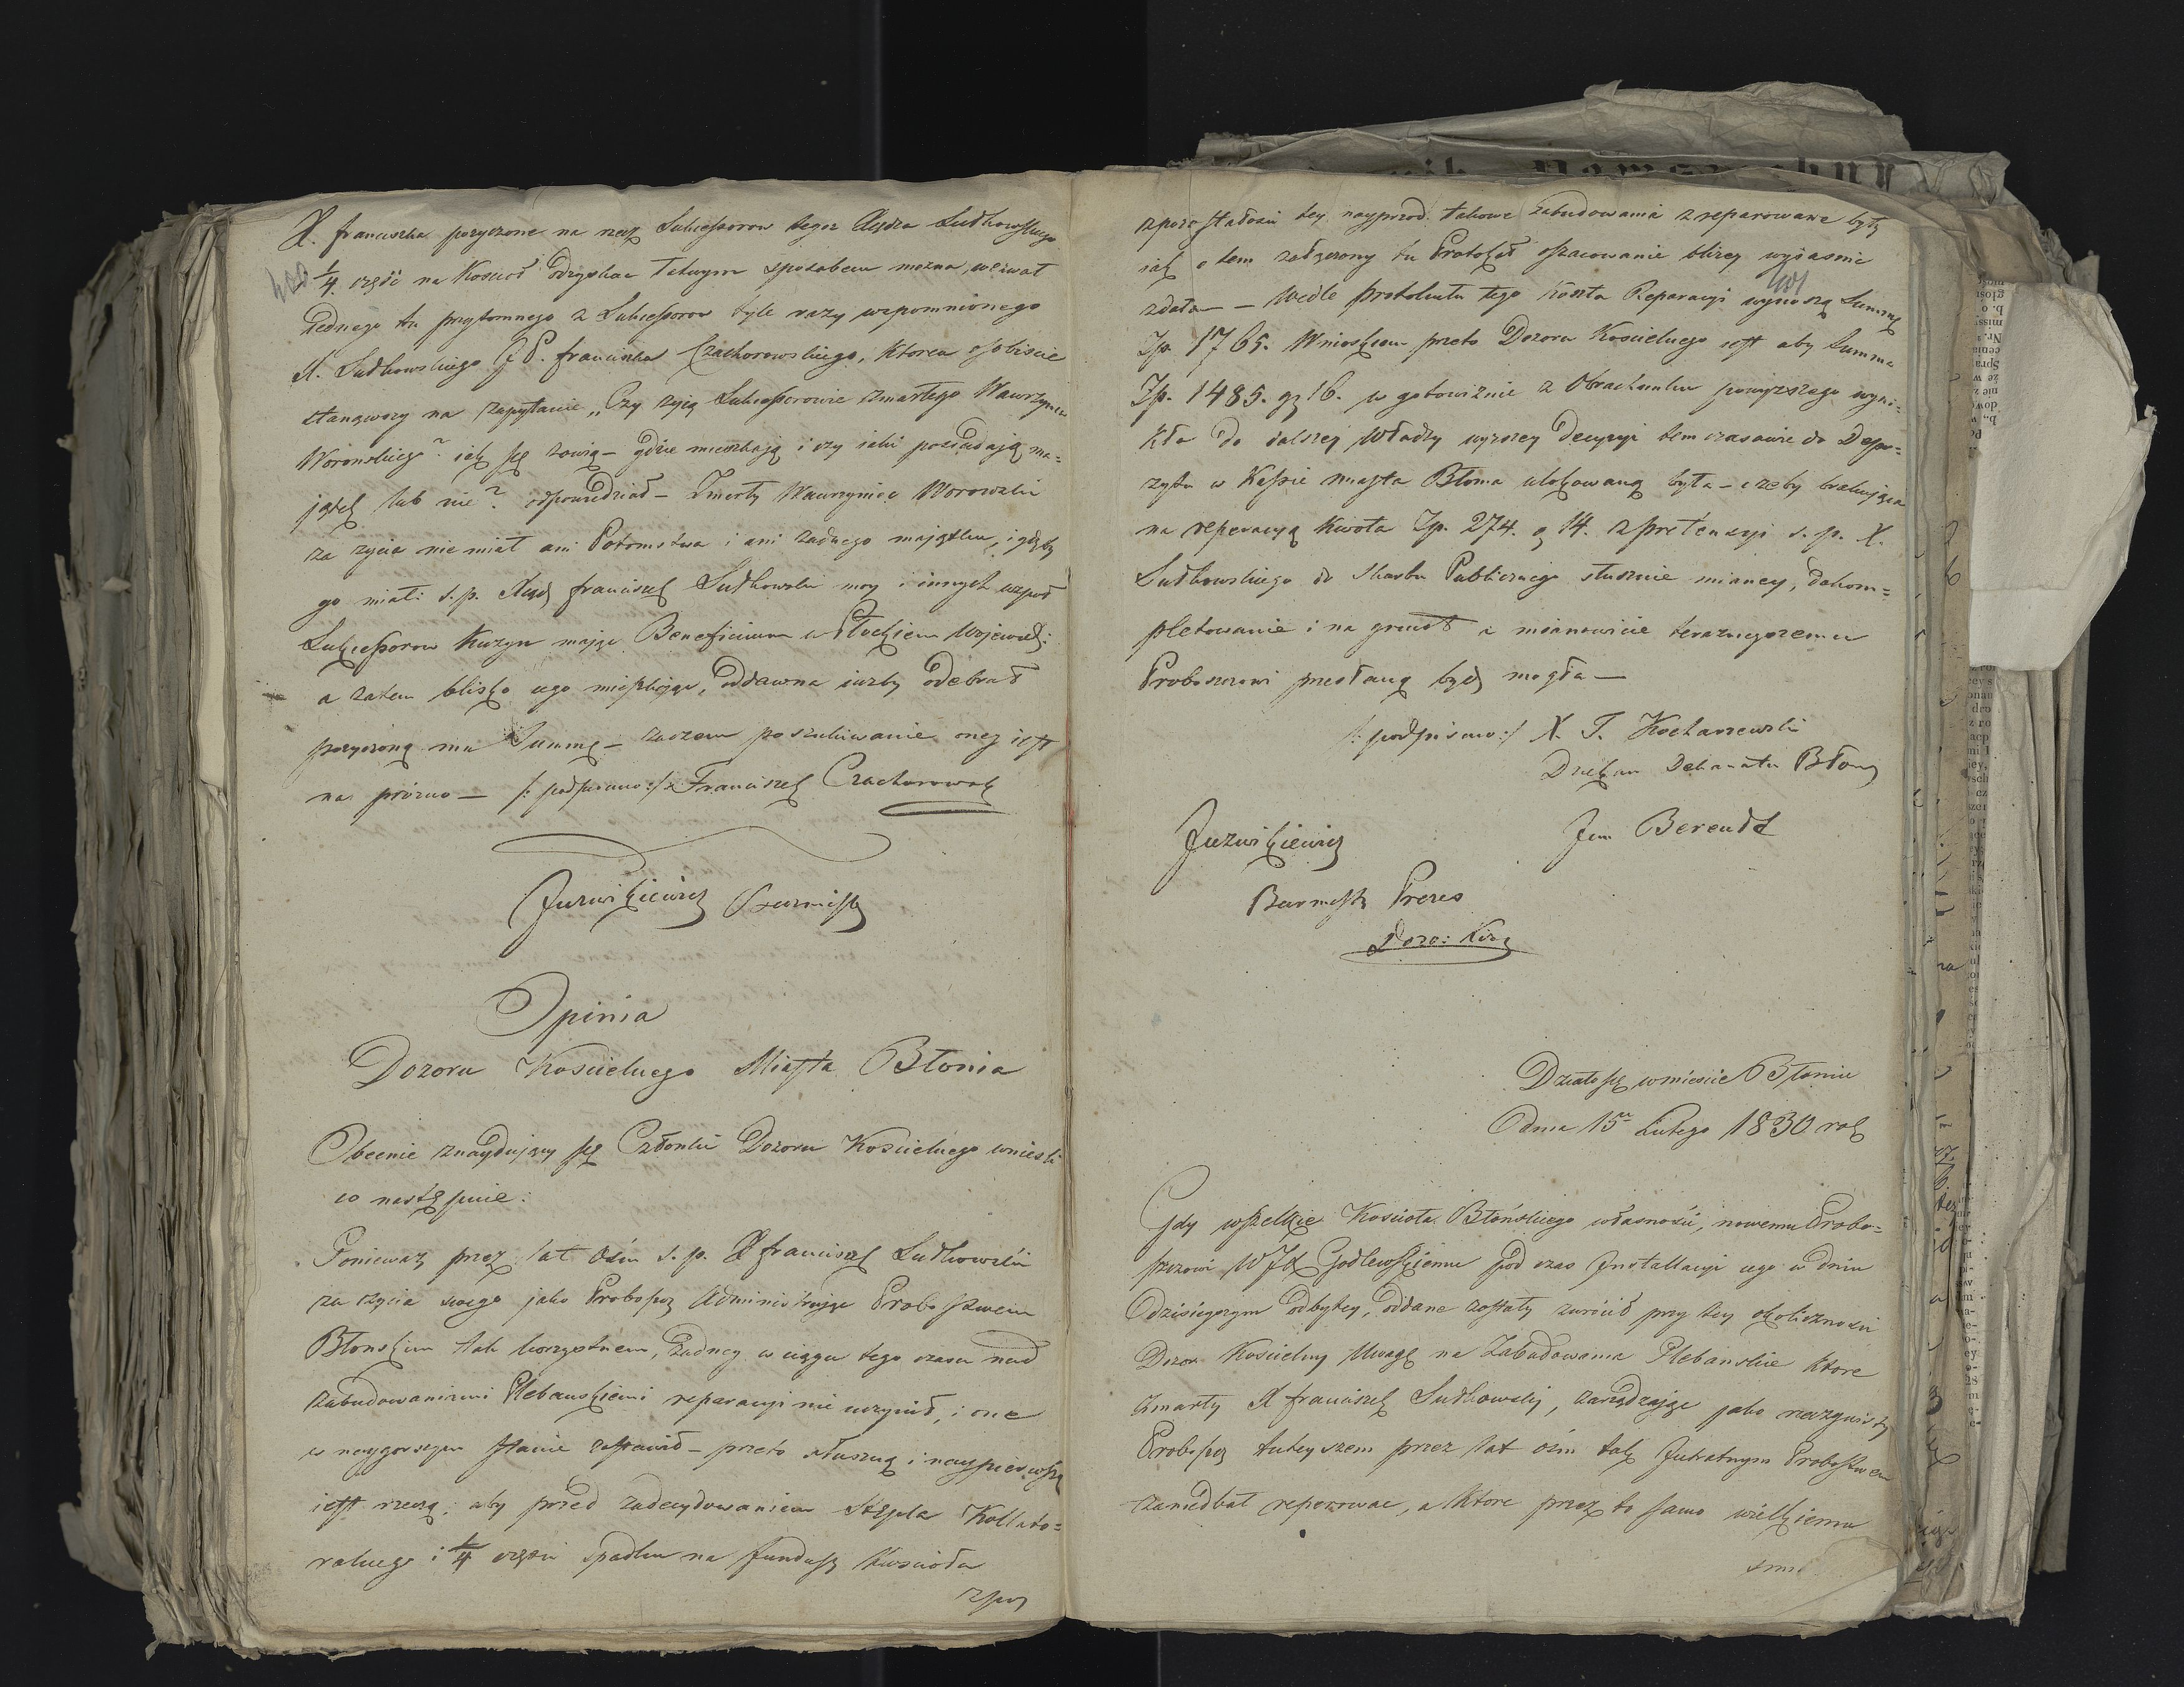 X. franciszka pożyczone na rzecz Sukcessorow tegoż Xiędza Sudkowskiego
1/4 część na Kościoł odzyskac Takowym sposobem można, wezwał
Jednego tu przytomnego z Sukcessorow tyle razy wspomnionego
X. Sudkowskiego JP. franciszka Czachorowskiego, ktoren osobiscie
stanąwszy na zapytanie „Czy zyią Sukcessorowie zmarłego Wawrzynca
Woronskiego? iak się zowią – gdzie mieszkają i czy iaki posiadają ma=
jątek lub nie? odpowiedział – Zmarły Wawrzyniec Worowski
za zycia nie miał ani Potomstwa i ani żadnego majątku, i gdyby
go miał: s. p. Xiądz franciszek Sudkowski moy i innych wspoł
Sukcessorow Kuzyn mając Beneficium w Płockiem Wojewod:
a zatem blisko iego mieszkając, oddawna iużby odebrał
pożyczoną mu Summę – zaczem poszukiwanie oney iest
na prózno – /: podpisano :/ Franciszek Czachorowski
Juzwikiewicz Burmistrz
Opinia
Dozoru Kościelnego Miasta Błonia
Obecnie znayduiący się Członki Dozoru Kościelnego wniesli
co następuie:
Ponieważ przez lat Ośm s. p. X franciszek Sudkowski
za życia swego jako Proboszcz Administrując Probostwem
Błonskim tak korzystnem, żadney w ciągu tego czasu nad
zabudowaniami Plebańskiemi reparacyi nie uczynił, i one
w naygorszym stanie zostawił – przeto słuszną i naypierwszą
iest rzeczą: aby przed zadecydowaniem Stępla Kollato=
ralnego i 1/4 części spadku na fundusz Kościoła
zpoz
400
401
zpozostałości tey nayprzod takowe zabudowania zreparowane były
iak o tem załączony tu Protokół oszacowanie bliżey wyiasnie
zdoła – Wedle protokułu tego koszta Reparacyi wynoszą Summę
Zp. 1765. Wnioskiem przeto Dozoru Kościelnego iest aby Summa
Zp. 1485. gr 16. w gotowiźnie z Obrachunku powyższego wyni=
kła do dalszey Władzy wyższey decyzyi tem czasowie do Depo=
zytu w Kassie miasta Błonia ulokowaną była – i żeby brakująca
na reperacyą kwota Zp. 274. g 14. z pretensyi s. p. X.
Sudkowskiego do Skarbu Publicznego słusznie mianey, dokom=
pletowanie i na grunt a mianowicie terazniejszemu
Proboszczowi przesłaną bydz mogła –
/: podpisano :/ X. T. Kocharzewski
Dziekan Dekanatu Błong
Juzwikiewicz
Jan Berendt
Burmistrz Prezes
Dozo: Kośc
Działo się w mieście Błoniu
Odnia 15go Lutego 1830 rok
Gdy wszelkie Kościoła Błońskiego własności, nowemu Probo=
szczowi WJX Godlewskiemu pod czas Installacyi iego w dniu
dzisieyszym odbytey, oddane zostały zwrócił przy tey okoliczności
Dozor Kościelny Uwagę na Zabudowania Plebanskie ktore
zmarły X franciszek Sudkowski, zarządzając jako rzeczywisty
Proboszcz tuteyszem przez lat ośm tak Intratnym Probostwem
zaniedbał reperowac, a ktore przez to samo wielkiemu